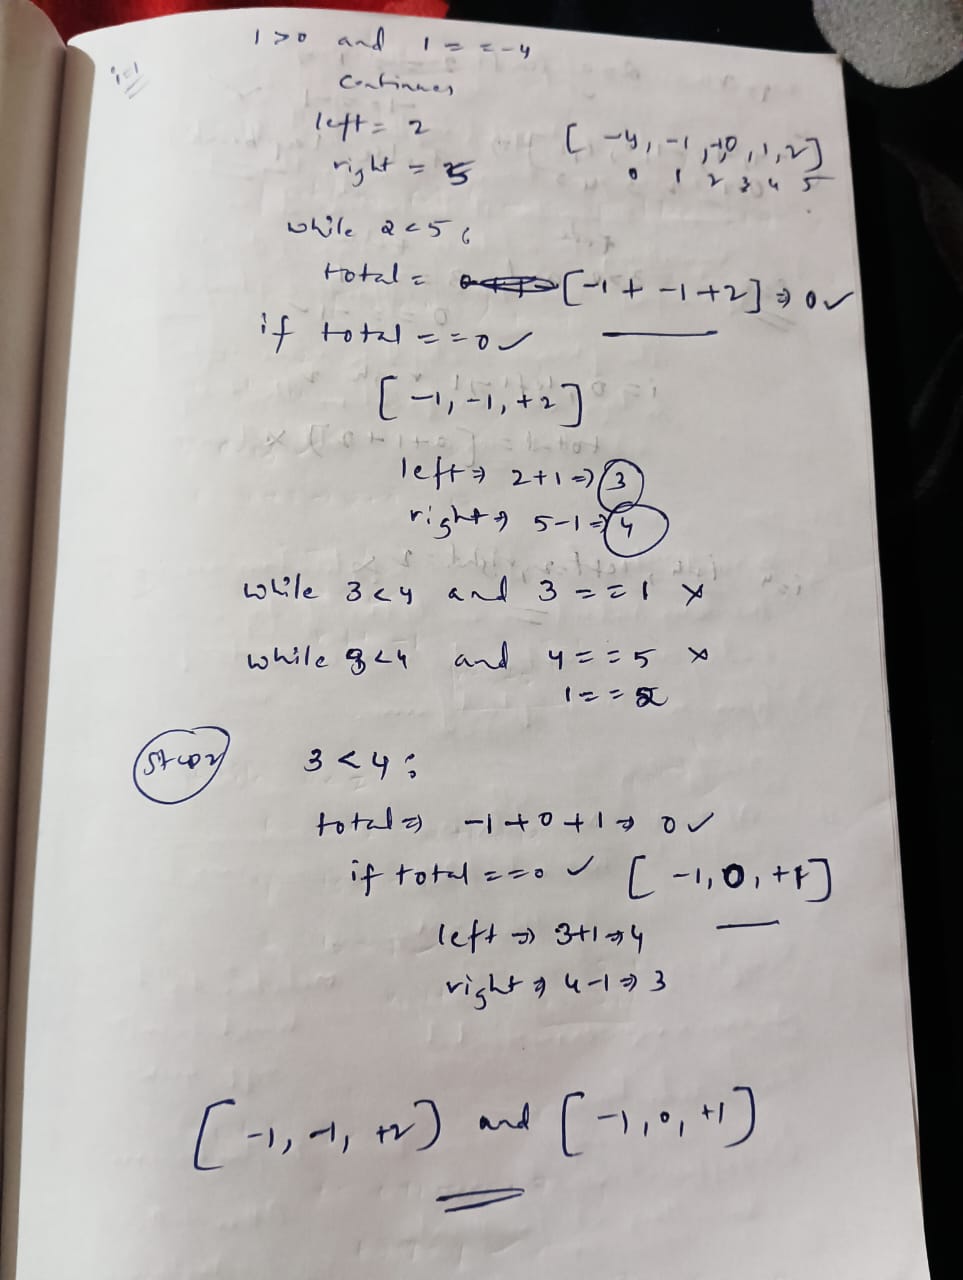 i=1
1 > 0 and 1 = = -4
continues
left = 2
right = 5
[ -4, -1, +0, 1, 2 ]
0 1 2 3 4 5
while 2 < 5 :
total = [ -1 + -1 + 2 ] ⇒ 0 ✓
if total = = 0 ✓
[ -1, -1, +2 ]
left ⇒ 2+1 ⇒ 3
right ⇒ 5-1 ⇒ 4
while 3 < 4 and 3 = = 1 ×
while 3 < 4 and 4 = = 5 ×
1 = =
3 < 4 :
total ⇒ -1 + 0 + 1 ⇒ 0 ✓
if total = = 0 ✓ [ -1, 0, +1 ]
left ⇒ 3+1 ⇒ 4
right ⇒ 4-1 ⇒ 3
[ -1, -1, +2 ] and [ -1, 0, +1 ]